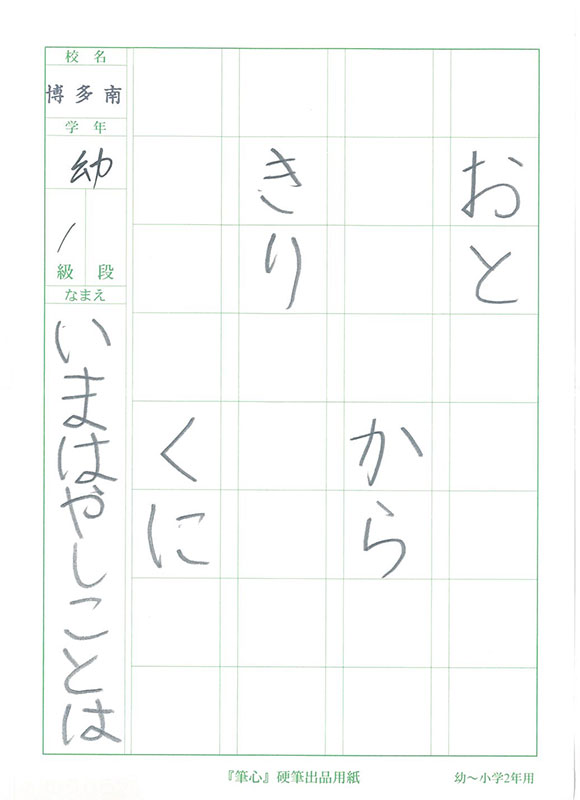 おと
から
きり
くに
校名
博多南
学年
幼
1
級 段
なまえ
いまはやしことは
『筆心』硬筆出品用紙
幼〜小学2年用